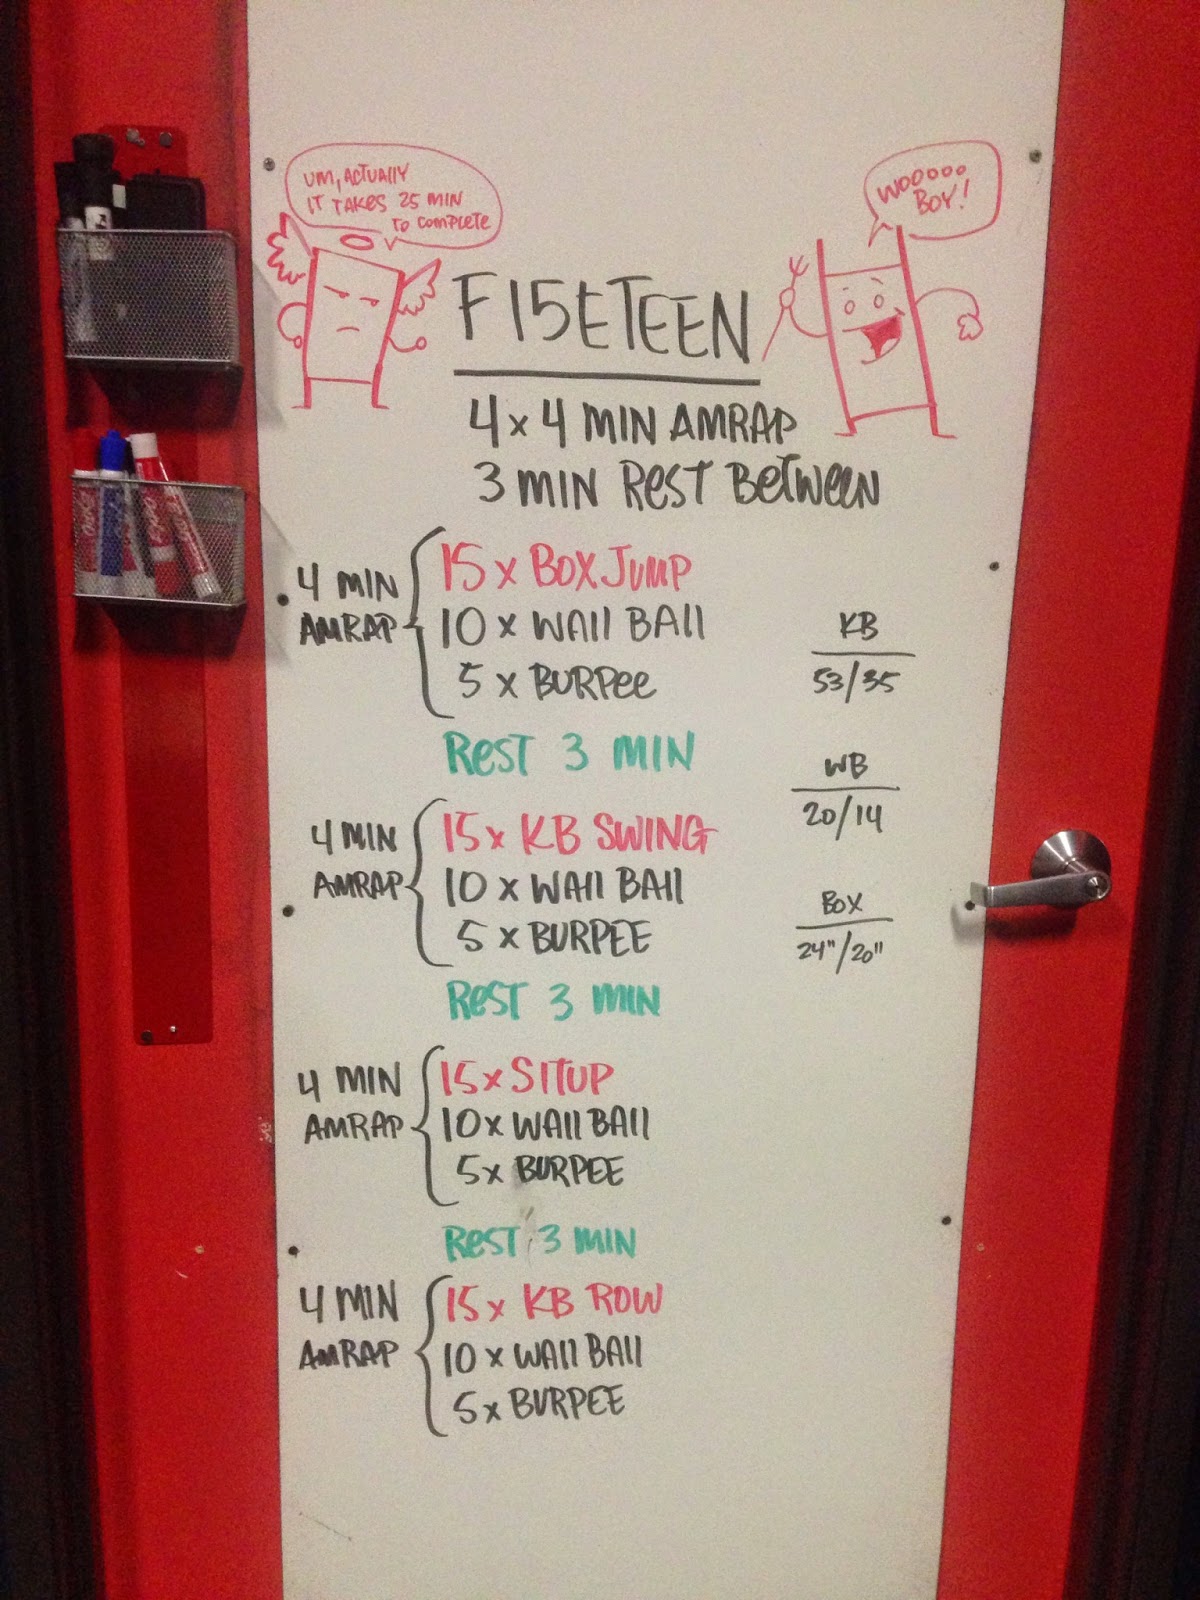 UM, ACTUALLY
IT TAKES 25 MIN
TO COMPLETE
WOOOOO
BOY!
F15ETEEN
4 x 4 MIN AMRAP
3 MIN REST BETWEEN
4 MIN
AMRAP
15 x BOX JUMP
10 x WALL BALL
5 x BURPEE
REST 3 MIN
4 MIN
AMRAP
15 x KB SWING
10 x WALL BALL
5 x BURPEE
REST 3 MIN
4 MIN
AMRAP
15 x SITUP
10 x WALL BALL
5 x BURPEE
REST 3 MIN
4 MIN
AMRAP
15 x KB ROW
10 x WALL BALL
5 x BURPEE
KB
53/35
WB
20/14
BOX
24"/20"
EXPO